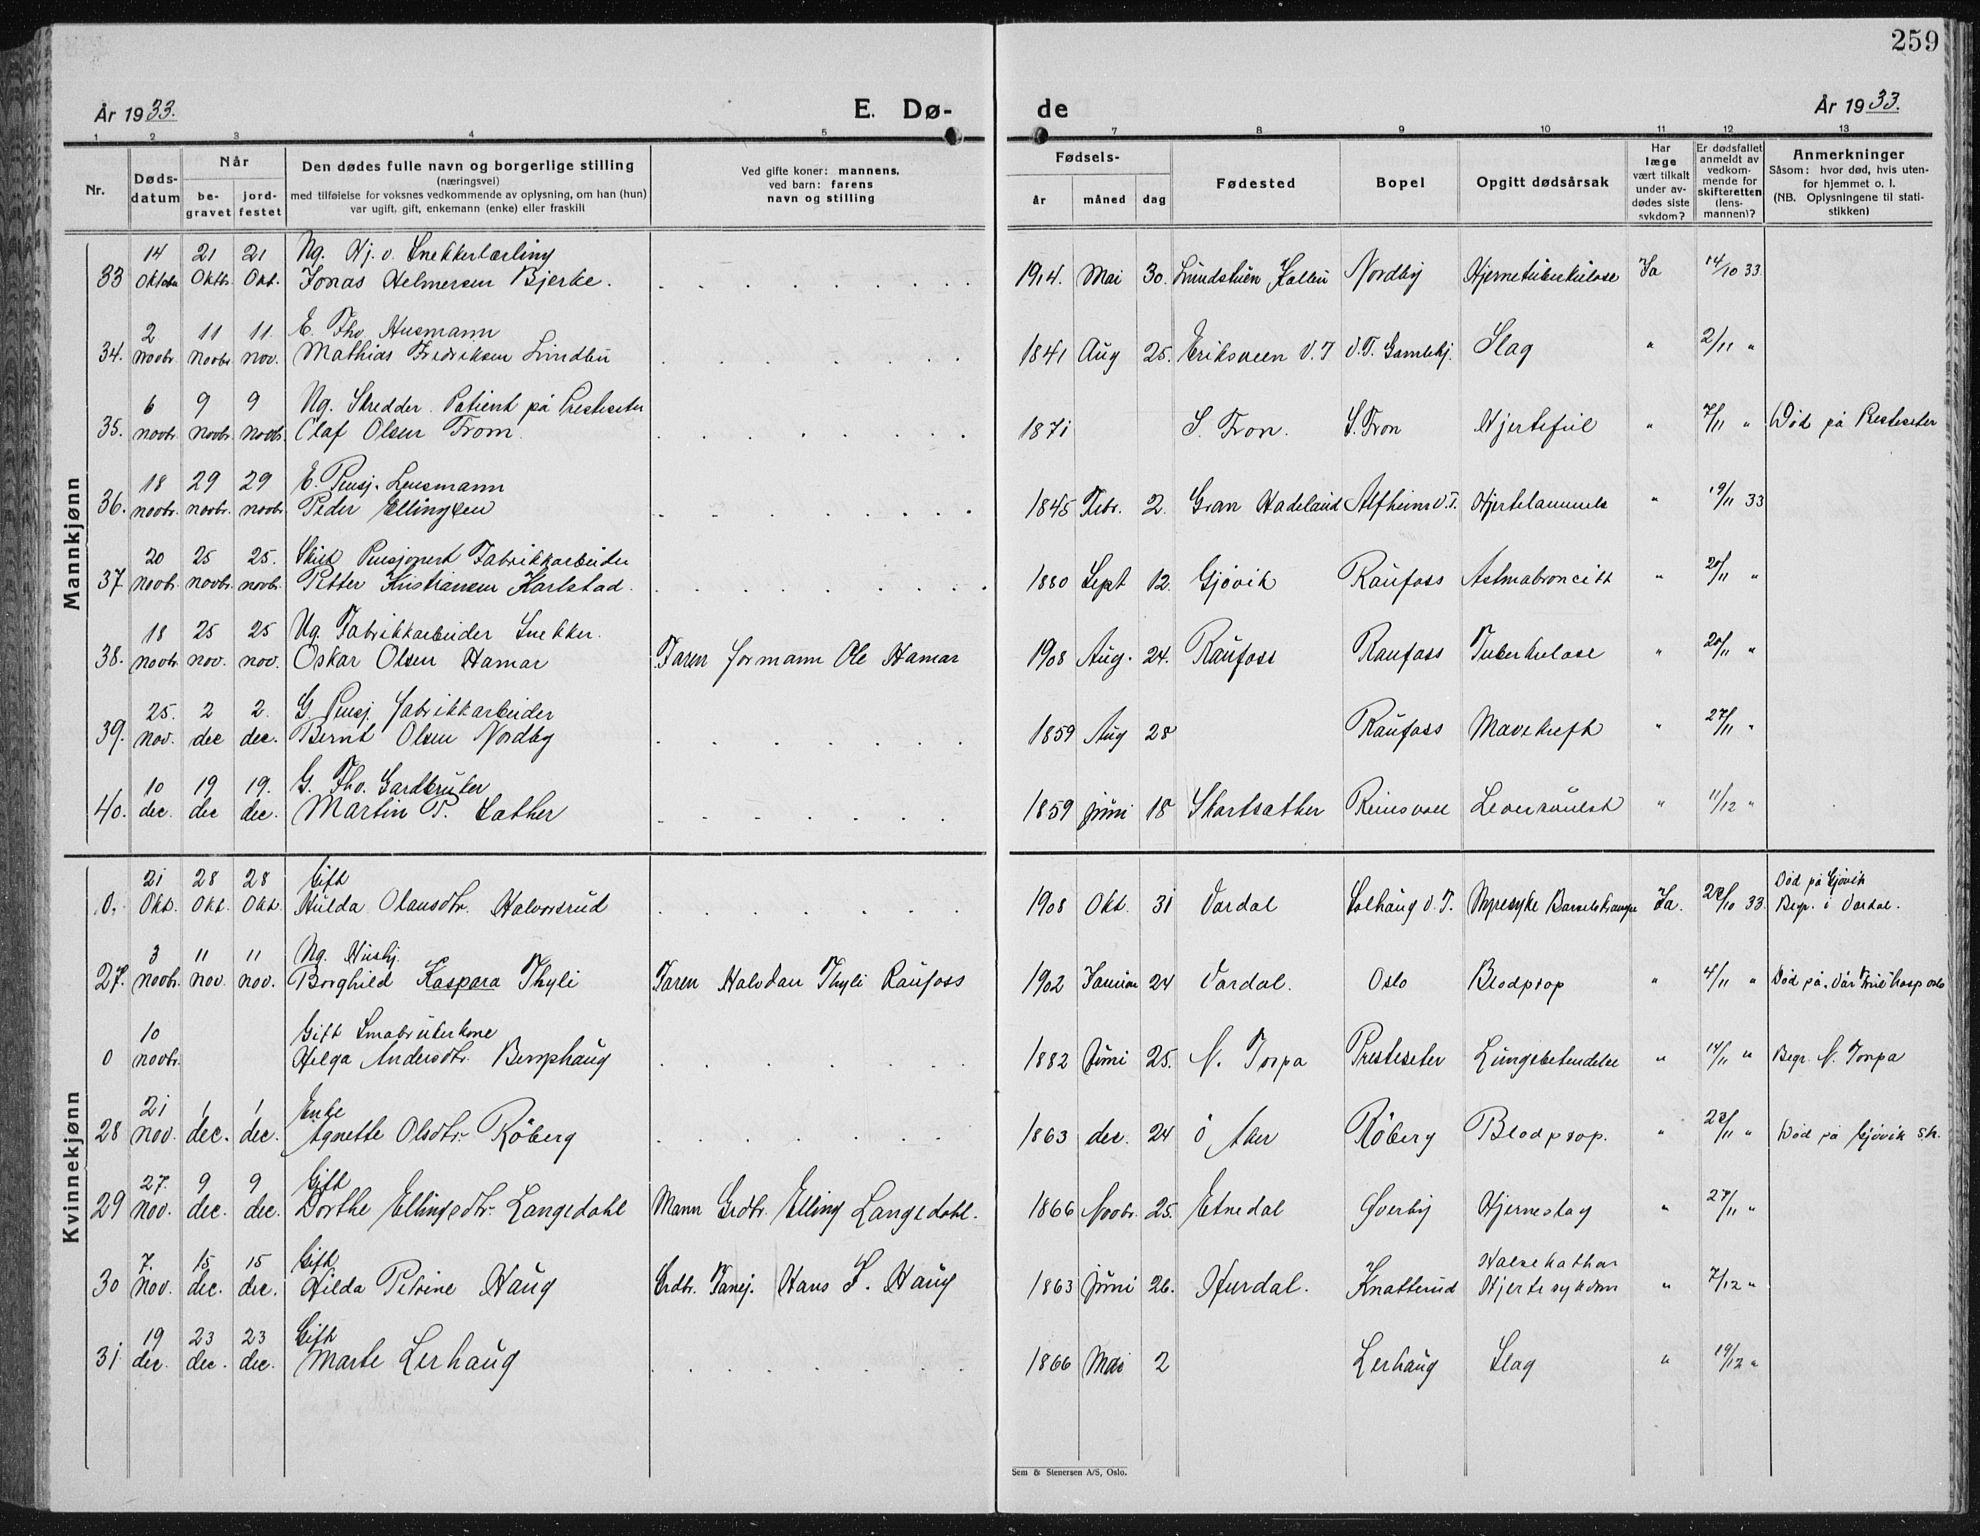 259
År 1933.
E. Dø-
de
År 1933.
1 2 3 4 5 7 8 9 10 11 12 13
Nr.
Døds-
datum
Når
be-
gravet
jord-
festet
Den dødes fulle navn og borgerlige stilling
(næringsvei)
med tilføielse for voksnes vedkommende av oplysning, om han (hun)
var ugift, gift, enkemann (enke) eller fraskill
Ved gifte koner: mannens,
ved barn: farens
navn og stilling
Fødsels-
år måned dag
Fødested
Bopel
Opgitt dødsårsak
Har
læge
vært tilkalt
under av-
dødes siste
sykdom?
Er dødsfallet
anmeldt av
vedkom-
mende for
skifteretten
(lens-
mannen)?
Anmerkninger
Såsom: hvor død, hvis uten-
for hjemmet o. l.
(NB. Oplysningene til stati-
stikken)
Mannkjønn
14 21 21 Ug. Hj. v. Snekkerlærling
33 Oktober Oktbr. Okt. Jonas Helmersen Bjerke. 1914. Mai 30. Lundstuen Kolbu Nordby Hjernetuberkulose Ja 14/10 33
2 11 11. E. Fhv. Husmann
34. novbr. novbr. nov. Mathias Fredriksen Lindbu 1841 Aug 25. Eriksveen V.T V.T. Gamlehj. Slag " 2/11 "
6 9 9 Ug. Skredder. Patient på Presteseter
35. novbr. novbr. novbr. Olaf Olsen Trom. 1871 S. Fron. S. Fron Hjertefeil " 7/11 " Død på Presteseter
18 29 29 E. Pensj. Lensmann
36. novbr. novbr. novbr. Peder Ellingsen 1845 Febr. 2. Gran Hadeland Alfheim V.T. Hjertelammels " 19/11 33
20 25 25. Skilt Pensjonert Fabrikkarbeider
37 novbr. novbr. novbr. Petter Kristiansen Karlstad. 1880 Sept 12. Gjøvik Raufoss Astmabroncitt " 20/11 "
18 25 25 Ug. Fabrikkarbeider Snekker.
38. novbr. nov. nov. Oskar Olsen Hamar Faren formann Ole Hamar 1908 Aug. 24. Raufoss Raufoss Tuberkulose " 20/11 "
25. 2 2 G. Pensj. fabrikkarbeider
39. nov. dec dec. Bernt Olsen Nordby 1859 Aug 28 Raufoss Mavekreft " 27/11 "
10 19 19. G. Fhv. Gardbruker
40. dec. dec dec. Martin P. Sæther 1859 juni 18 Skartsæther Reinsvoll Leversvulst " 11/12 "
Kvinnekjønn
21 28 28 Gift
0. Okt. Okt. Okt. Hulda Olausdtr. Halvorsrud 1908 Okt. 31 Vardal Solhaug V.T. Nyresyke Barselskrampe Ja. 23/10 33. Død på Gjøvik
Begr. i Vardal.
3 11 11 Ug. Hushj.
27. novbr. nov. nov. Borghild Kaspara Thyli Faren Halvdan Thyli Raufoss 1902 Januar 24 Vardal. Oslo Blodprop " 4/11 " Død på Vår Frue hosp Oslo
10 Gift Småbrukerkone
0 novbr. Helga Andersdtr. Bemphaug 1882 Juni 25. N. Torpa Presteseter Lungebetendelse " 14/11 " Begr. N. Torpa
21 1 1 Enke
28 nov. dec. dec. Agnette Olsdtr. Röberg 1863 dec. 24 Ö Aker Röberg Blodprop. " 23/11 " Død på Gjøvik s.h.
27. 9 9 Gift
29 nov. dec. dec. Dorthe Ellingsdtr. Langedahl Mann Grdbr. Elling Langedahl. 1866 Novbr. 25. Etnedal Øverby Hjerneslag " 27/11 "
7. 15 15 Gift
30 nov. dec. dec. Hilda Petrine Haug Grdbr. Hans J. Haug 1863 juni 26. Hurdal. Knatterud Halsekathar
Hjertesykdom " 7/12 "
19 23 23 Gift
31 dec. dec. dec. Marte Lerhaug 1866 Mai 2 Lerhaug Slag " 19/12 "
Sem & Stenersen A/S, Oslo.